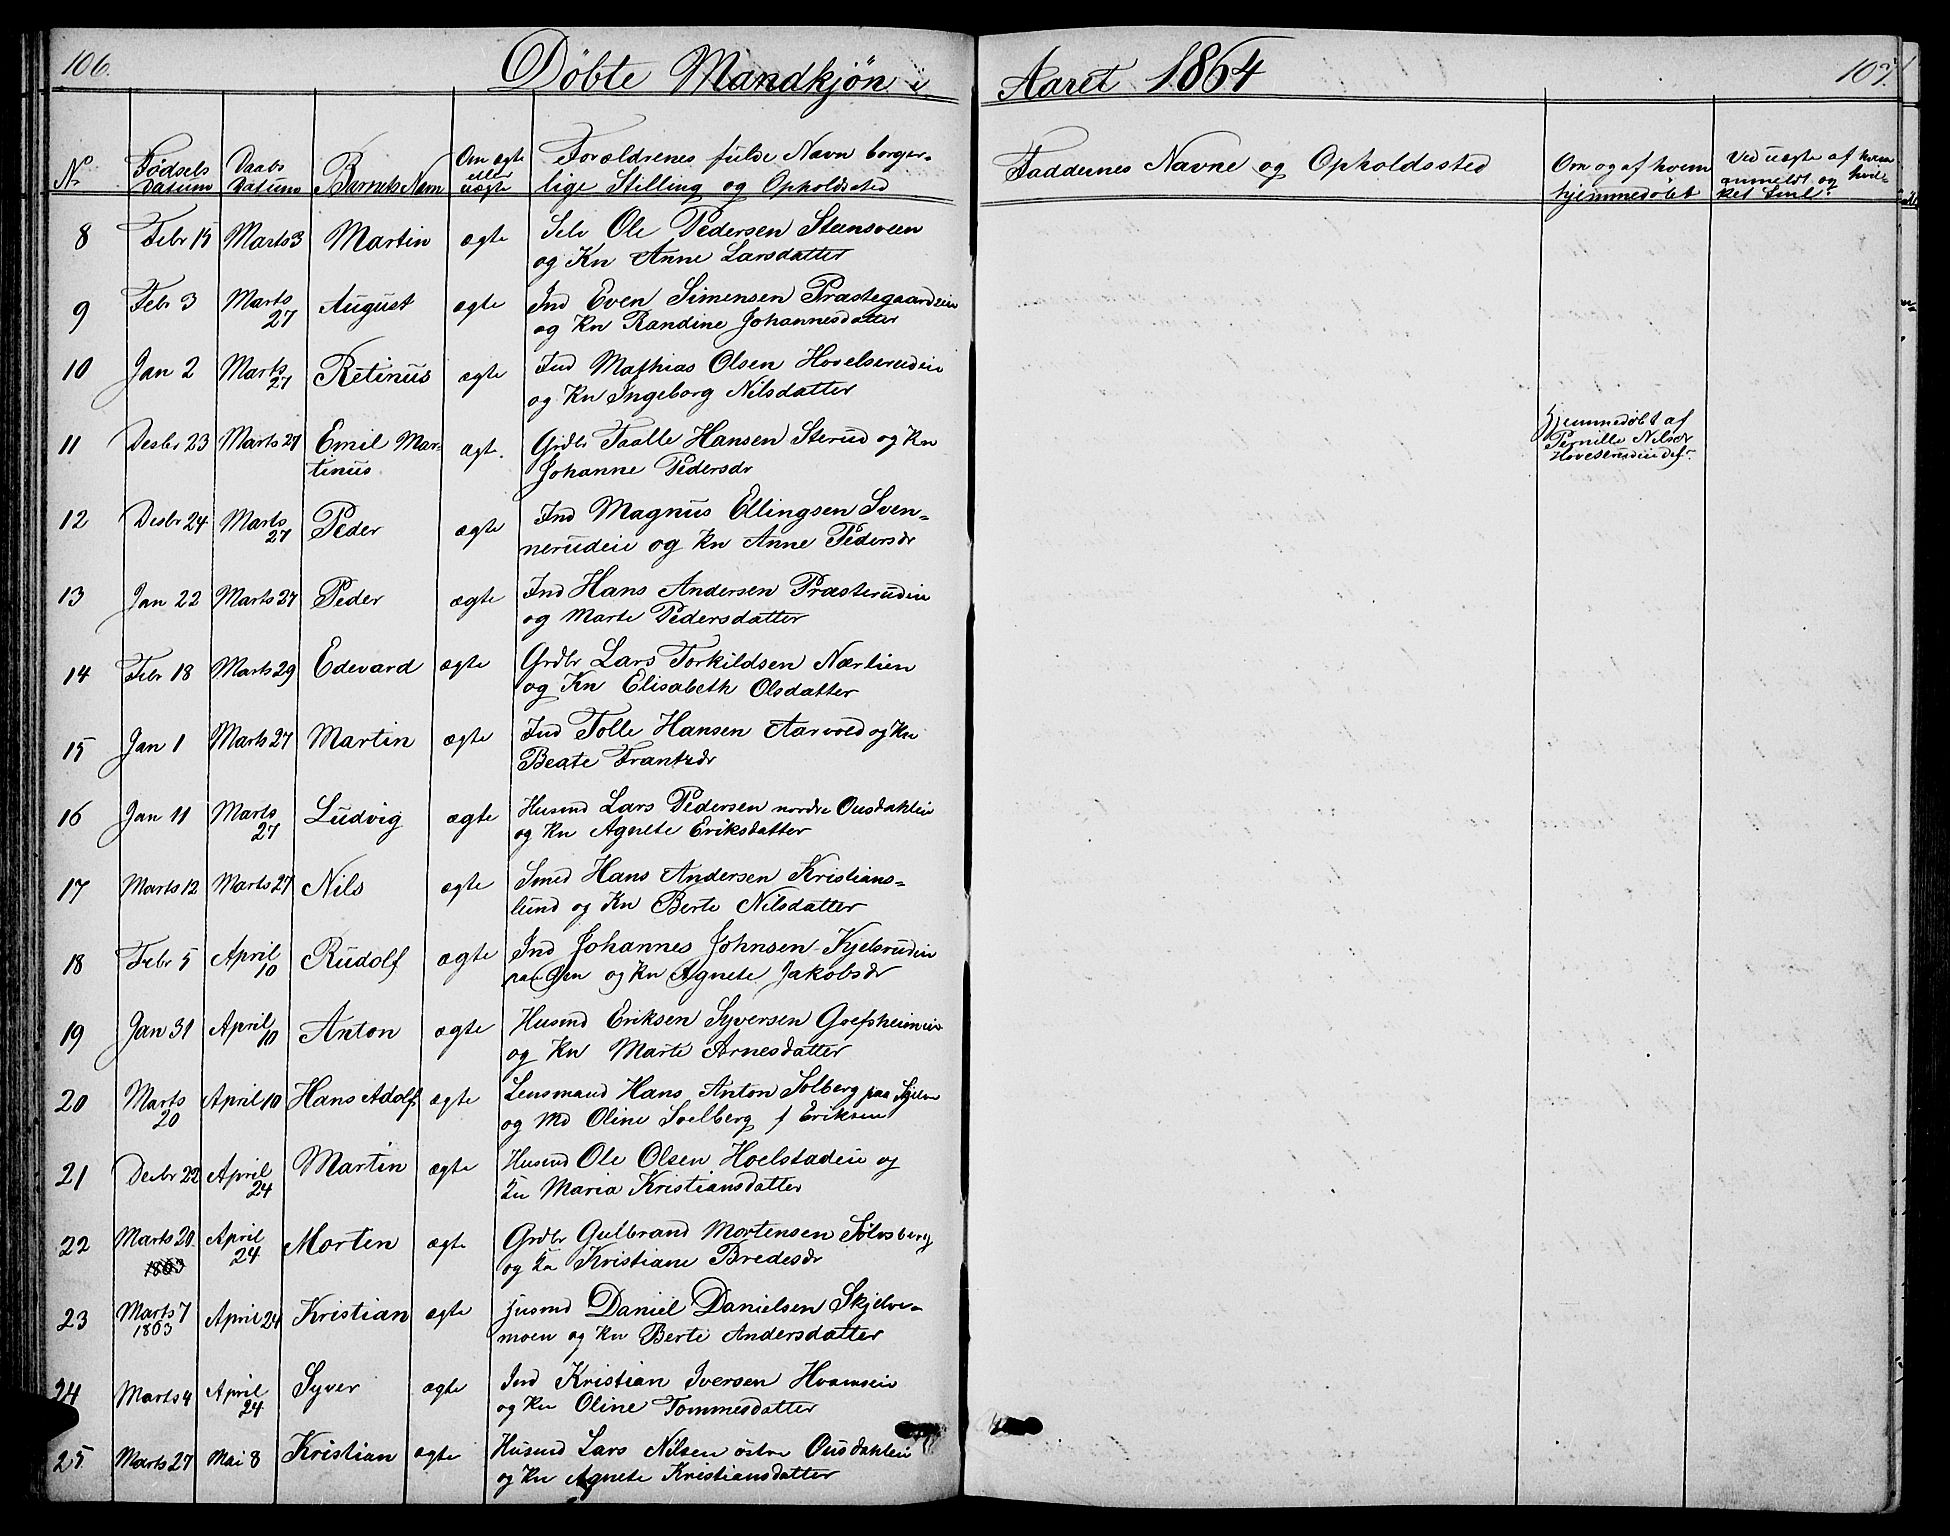 106.
Döbte Mandkjön i
Aaret 1864
107.
No
Födsels Datum
Daabs Datum
Barnets Navn
Om ægte eller uægte
Forældrenes fulde Navn borger-
lige Stilling og Opholdssted
Faddernes Navne og Opholdssted
Om og af hvem
hjemmedöbt
Ved uægte af hvem
anmeldt og hvil-
ket Leul?
8 Febr 15 Marts 3 Martin ægte Selv Ole Pedersen Stensveen
og Kn Anne Larsdatter
9 Febr 3 Marts 27 August ægte Ind Even Simensen Præstegaardeie
og Kn Randine Johannesdatter
10 Jan 2 Marts 27 Retinus ægte Ind Mathias Olsen Hovelserudeie
og Kn Ingeborg Nilsdatter
11 Desbr 23 Marts 27 Emil Mar- ægt. Grdbr Taalle Hansen Sterud og Kn
tinus Johanne Pedersdr
Hjemmedöbt af
Pernille Nilsdr
Hovelserudeie
12 Desbr 24 Marts 27 Peder ægte Ind Magnus Ellingsen Sven-
nerudeie og Kn Anne Pedersdr
13 Jan 22 Marts 27 Peder ægte Ind Hans Andersen Præsterudeie
og Marte Pedersdatter
14 Febr 18 Marts 29 Edevard ægte Grdbr Lars Torkildsen Nærlien
og Kn Elisabeth Olsdatter
15 Jan 1 Marts 27 Martin ægte Ind Tolle Hansen Aarvold og Kn
Beate Frantzdr
16 Jan 11 Marts 27 Ludvig ægte Husmd Lars Pedersen nordre Ousdahleie
og Kn Agnete Eriksdatter
17 Marts 12 Marts 27 Nils ægte Smed Hans Andersen Kristians-
lund og Kn Berte Nilsdatter
18 Febr 5 April 10 Rudolf ægte Ind Johannes Johnsen Kjelsrudeie
paa Öen og Kn Agnete Jakobsdr
19 Jan 31 April 10 Anton ægte Husmd Eriksen Syversen Goefsheimeie
og Kn Marte Arnesdatter
20 Marts 20 April 10 Hans Adolf ægte Lensmand Hans Anton Solberg paa Skjelve
og Md Oline Soelberg f Eriksen
21 Desbr 22 April 24 Martin ægte Husmd Ole Olsen Hoelstadeie og
Kn Maria Kristiansdatter
22 Marts 20 April 24 Morten ægte Grdbr Gulbrand Mortensen Sölvsberg
1863 og Kn Kristiane Bredesdr
23 Marts 7 April 24 Kristian ægte Husmd Daniel Danielsen Skjelve-
1863 moen og Kn Berte Andersdatter
24 Marts 4 April 24 Syver ægte Ind Kristian Iversen Hvamseie
og Kn Oline Tommesdatter
25 Marts 27 Mai 8 Kristian ægte Husmd Lars Nilsen östre Ousdahleie
og Kn Agnete Kristiansdatter